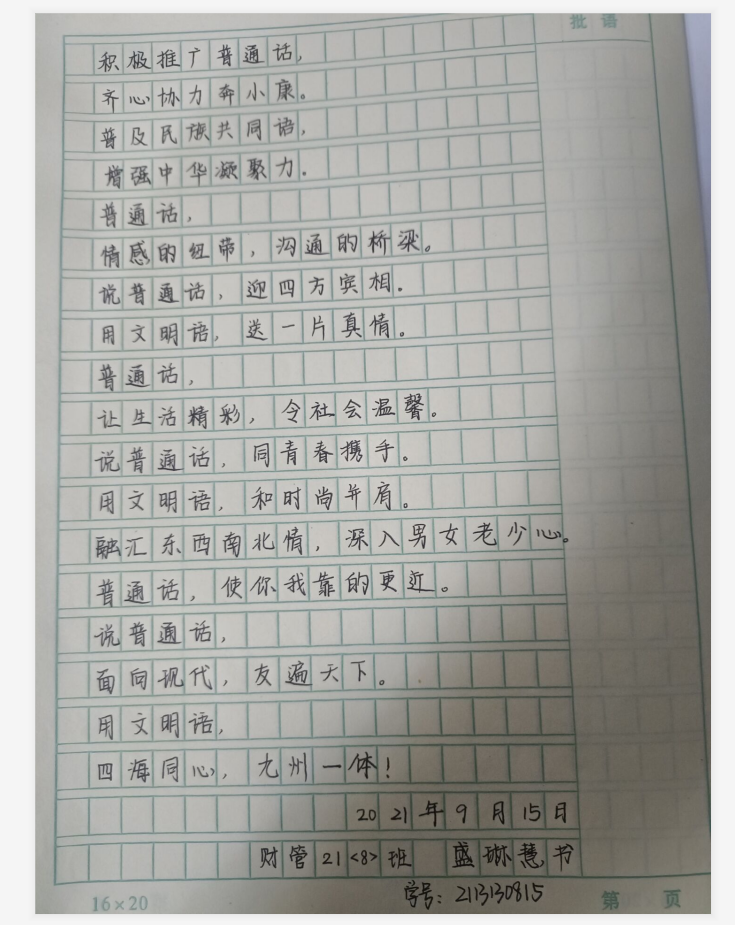 批 语
积极推广普通话,
齐心协力奔小康。
普及民族共同语,
增强中华凝聚力.
普通话,
情感的纽带,沟通的桥梁。
说普通话,迎四方宾相.
用文明语,送一片真情。
普通话,
让生活精彩,令社会温馨。
说普通话,同青春携手。
用文明语,和时尚并肩。
融汇东西南北情,深入男女老少心。
普通话,使你我靠的更近。
说普通话,
面向现代,友遍天下。
用文明语,
四海同心,九州一体!
2021年9月15日
财管21<8>班 盛琳慧书
学号:2113130815
16×20 第 页